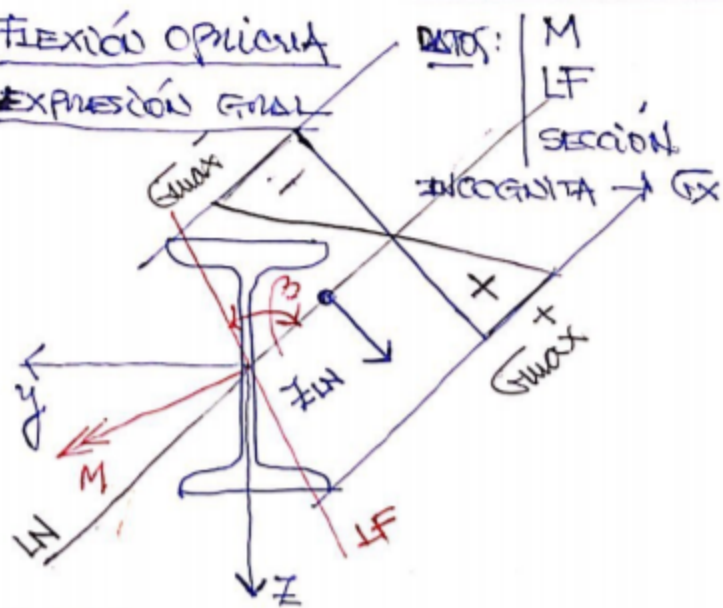 FLEXIÓN OBLICUA
EXPRESIÓN GRAL
DATOS: M
LF
SECCIÓN
INCOGNITA → σx
σmax -
-
+
σmax +
β
zLN
y
M
LN
LF
z